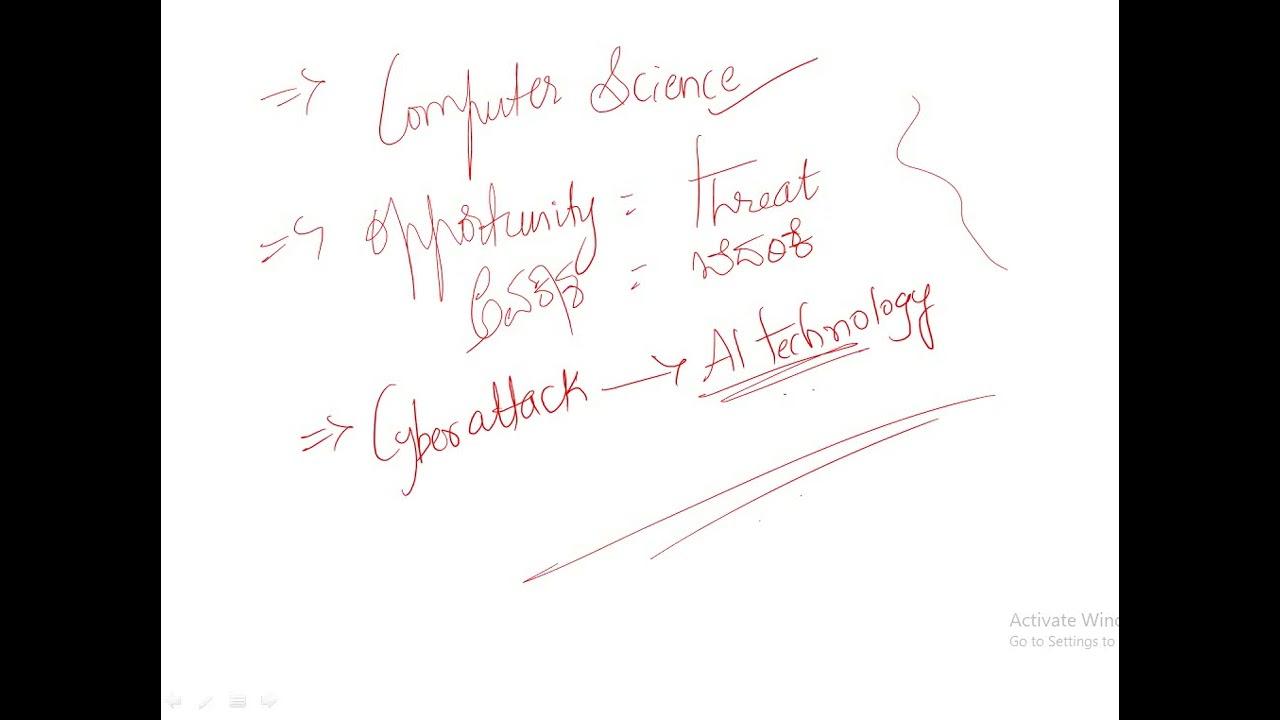 ⇒ Computer Science
⇒ Opportunity = Threat
ಅವಕಾಶ = ಬೆದರಿಕೆ
⇒ Cyber attack → AI technology
Activate Winc
Go to Settings to